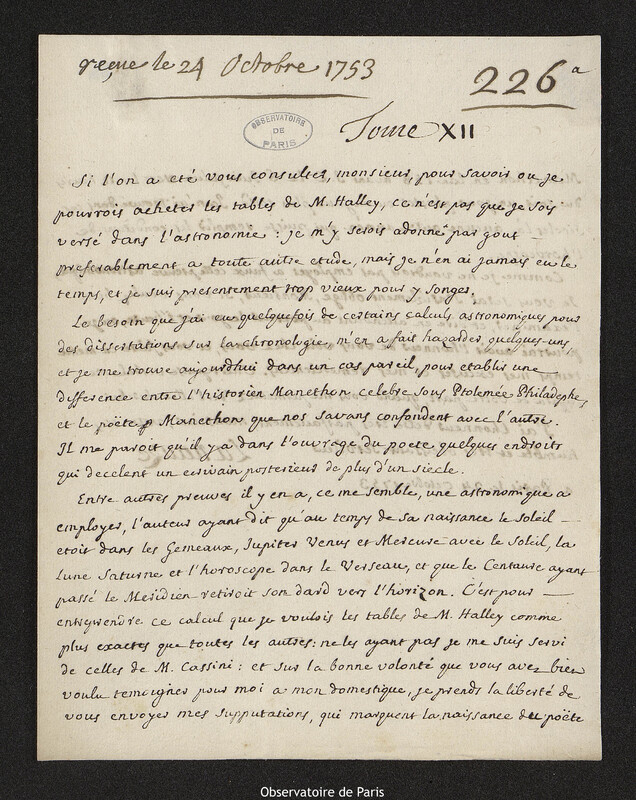 reçue le 24 Octobre 1753
226a
OBSERVATOIRE DE PARIS
Tome XII
Si l'on a eté vous consulter, monsieur, pour savoir ou je
pourrois acheter les tables de M. Halley, ce n'est pas que je sois
versé dans l'astronomie : je m'y serois adonné par gout
preferablement a toute autre etude, mais je n'en ai jamais eu le
temps, et je suis presentement trop vieux pour y songer.
Le besoin que j'ai eu quelquefois de certains calculs astronomiques pour
des dissertations sur la chronologie, m'en a fait hazarder quelques-uns,
et je me trouve aujourdhui dans un cas pareil, pour etablir une
difference entre l'historien Manethon celebre sous Ptolemée Philadelphe,
et le poëte Manethon que nos savans confondent avec l'autre.
Il me paroit qu'il y a dans l'ouvrage du poete quelques endroits
qui decelent un ecrivain posterieur de plus d'un siecle.
Entre autres preuves il y en a, ce me semble, une astronomique a
employer, l'auteur ayant dit qu'au temps de sa naissance le Soleil
etoit dans les Gemeaux, Jupiter Venus et Mercure avec le Soleil, la
Lune Saturne et l'horoscope dans le Verseau, et que le Centaure ayant
passé le Meridien retiroit son dard vers l'horizon. C'est pour
entreprendre ce calcul que je voulois les tables de M. Halley comme
plus exactes que toutes les autres : ne les ayant pas je me suis servi
de celles de M. Cassini : et sur la bonne volonté que vous avez bien
voulu temoigner pour moi a mon domestique, je prends la liberté de
vous envoyer mes supputations, qui marquent la naissance du poëte
Observatoire de Paris